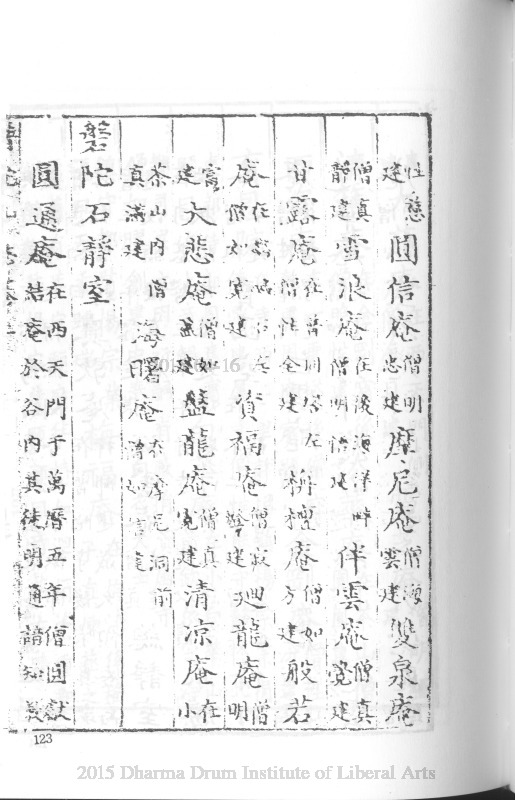 性慈建圓信庵僧明忠建摩尼庵僧海雲建雙泉庵
僧真靜建雪浪庵在後海洋畔僧明悟建伴雲庵僧真覺建
甘露庵在普同塔左僧性全建栴檀庵僧如方建般若
庵在 僧如寬建資福庵僧寂 建廻龍庵僧明
富建大悲庵僧如 建盤龍庵僧真寬建清凉庵在小
茶山內僧真滿建海曙庵在摩尼洞前僧如 建
磐陀石靜室
圓通庵在西天門于萬曆五年僧圓獻結庵於谷內其徒明通諳知義
123
2015 Dharma Drum Institute of Liberal Arts